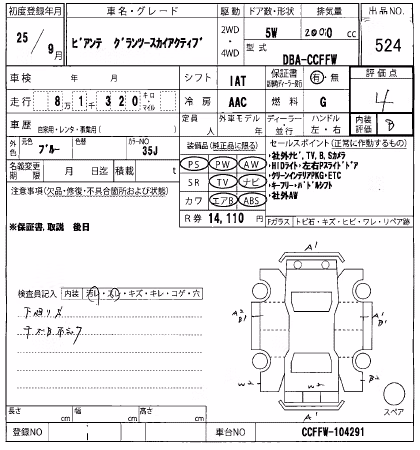 初度登録年月 車名・グレード 駆動 ドア数・形状 排気量 出品No
25/9月 ビアンテ グランツースカイアクティブ 2WD・4WD 5W 2000 cc 524
型式 DBA-CCFFW
車検 年 月 シフト IAT 保証書 有・無 評価点
走行 8万1千320キロ・マイル 冷房 AAC 燃料 G 4
車歴 自家用・レンタ・事業用( ) 定員 人 外車モデル 年 ディーラー・並行 ハンドル 左・右 内装評価 B
外色 元色 ブルー 色替 カラーNO 35J
装備品(純正品に限る) セールスポイント(正常に作動するもの)
名義変更期限 月 日迄 積載 t
PS PW AW
SR TV ナビ
カワ エアB ABS
・社外ナビ,TV,B,Sカメラ
・HIDライト・左右Pスライドドア
・クリーンインテリアPKG・ETC
・キーフリー・パドルシフト
・社外AW
注意事項(欠品・修復・不具合箇所および状態)
R券 14,110円 Fガラス トビ石・キズ・ヒビ・ワレ・リペア跡
※保証書、取説 後日
検査員記入 内装 汚レ・スレ・キズ・キレ・コゲ・穴
下廻りS
A1
A2
B1
A1
B1
W2
W2
B2
A1
スペア
長さ cm 幅 cm 高さ cm
登録NO 車台NO CCFFW-104291